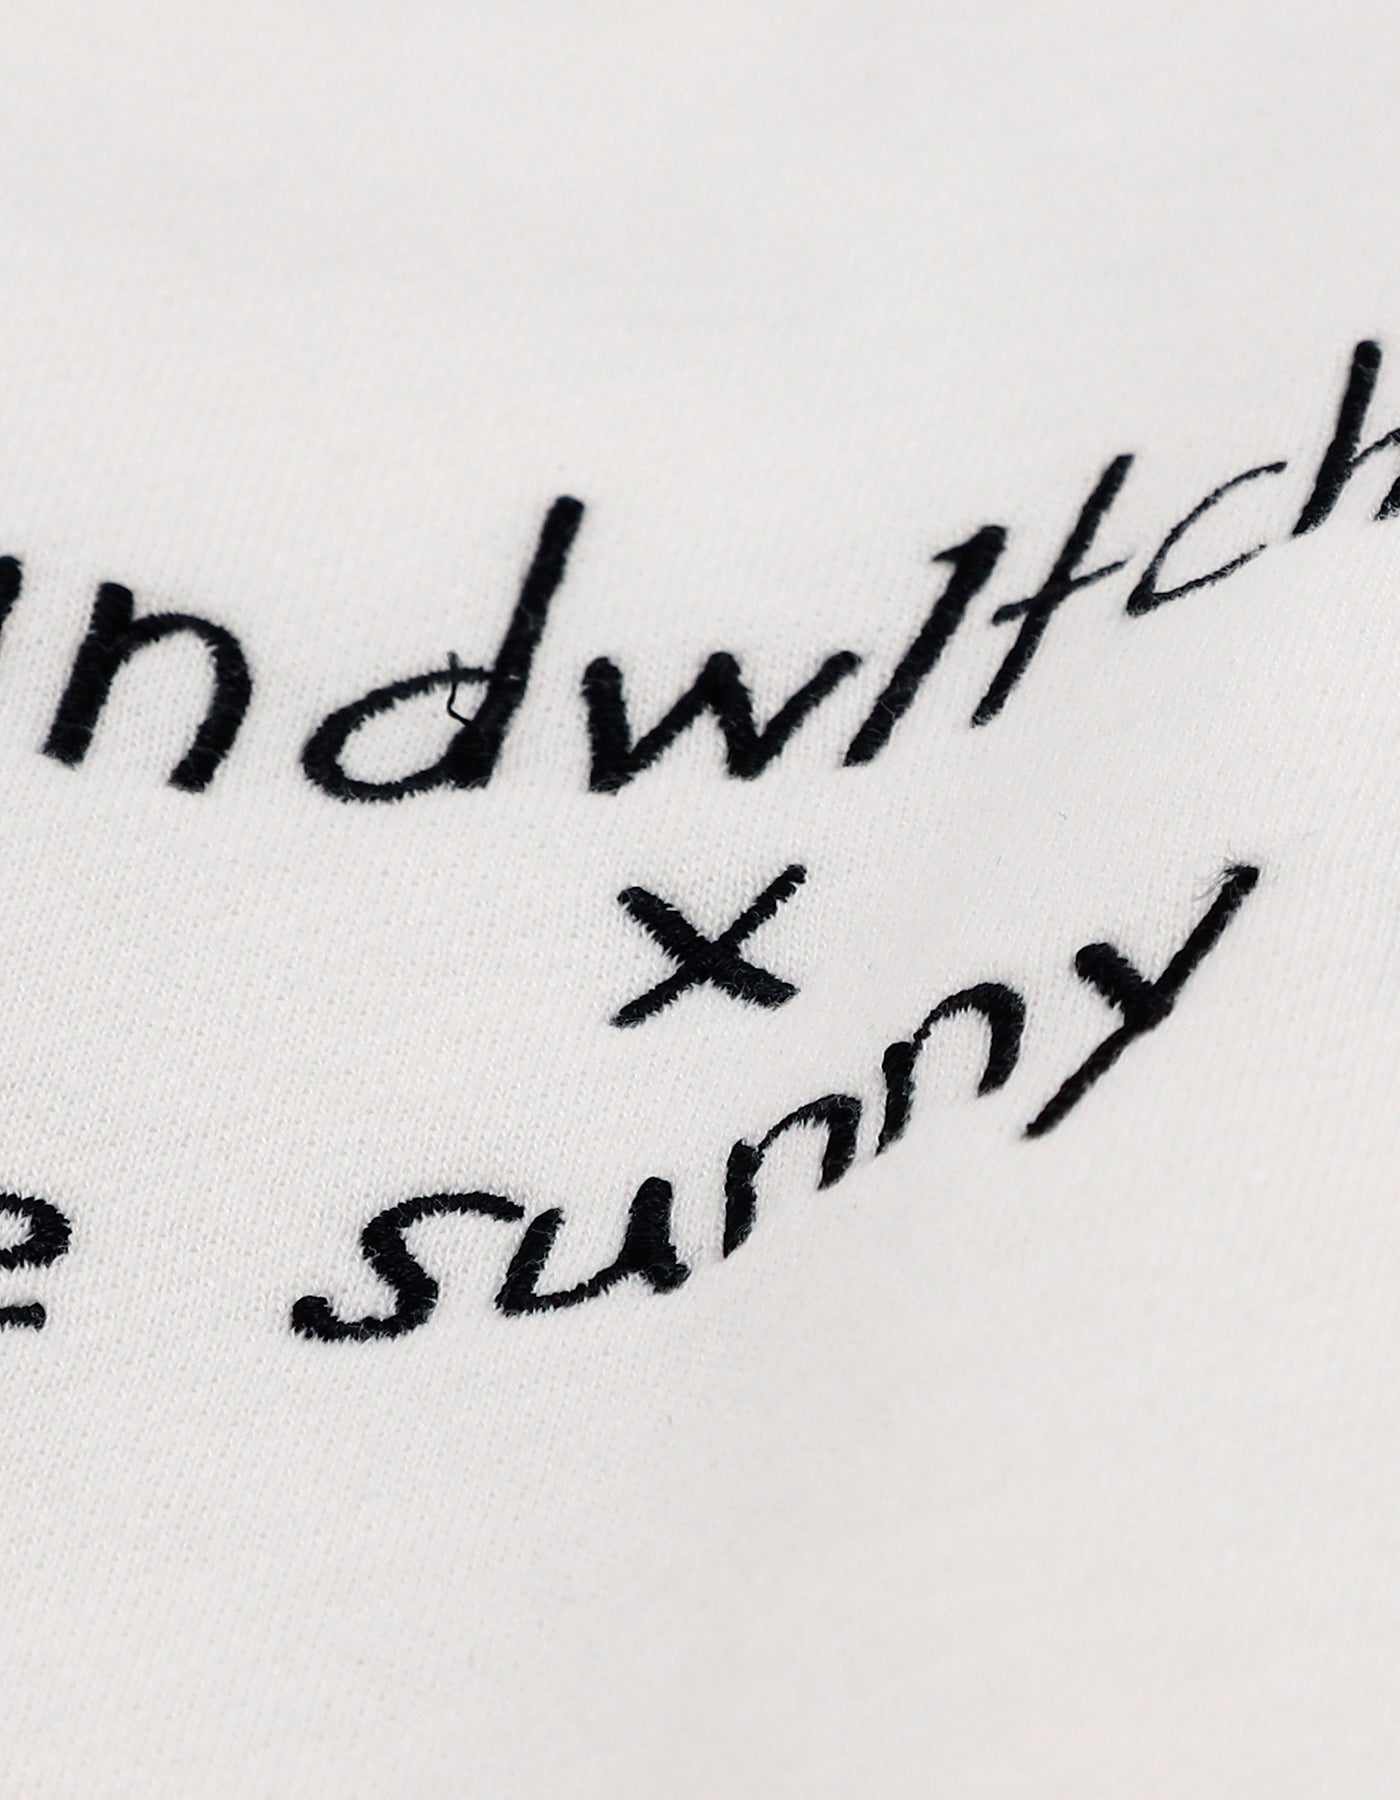 ndwitch
x
e sunny